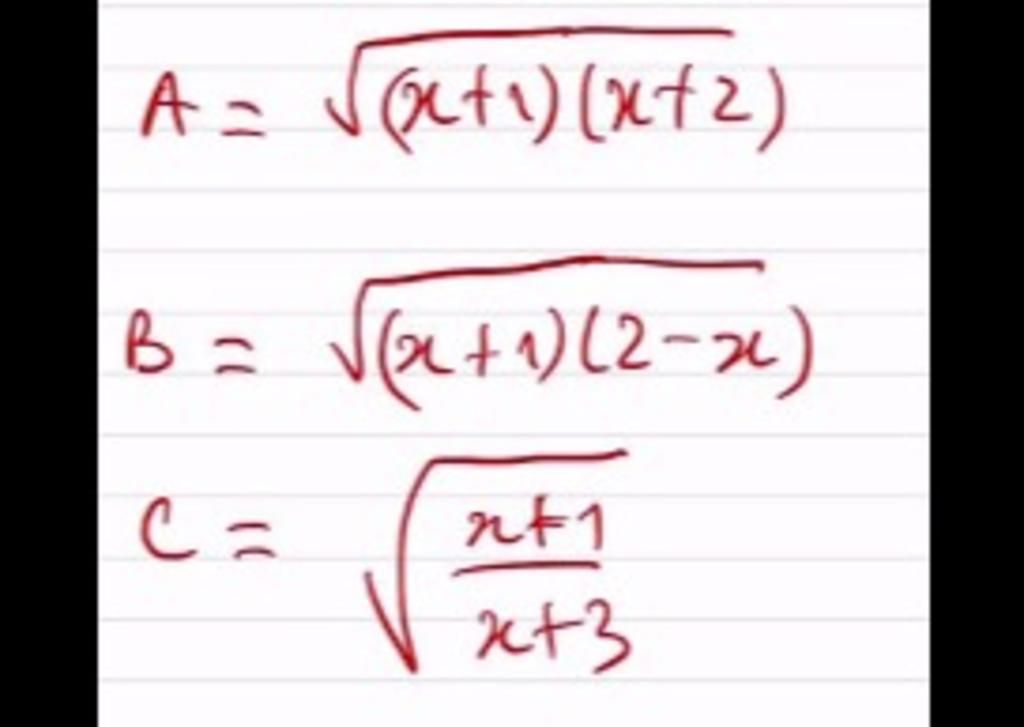 A = √(x+1)(x+2)
B = √(x+1)(2-x)
C = √x+1/x+3